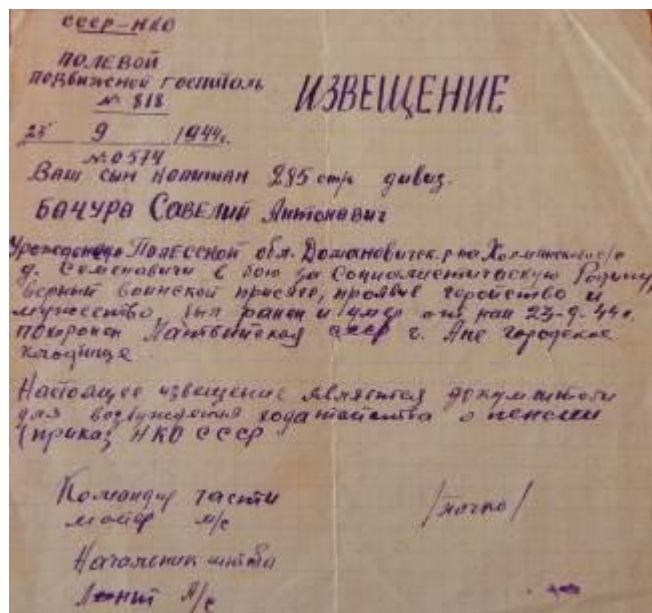 СССР-НКО
ПОЛЕВОЙ
подвижной госпиталь
№ 818
ИЗВЕЩЕНИЕ
23 9 1944г.
№ 0574
Ваш сын капитан 285 стр. дивиз.
БАЧУРА Савелий Антонавич
Полесской обл. Домановичск. р-на
д. Семеновичи в бою за Социалистическую Родину,
верный воинской присяге, проявив геройство и
мужество, был ранен и умер от ран 23-9-44г.
похоронен Латвийская ССР г. Апе городское
кладбище
Настоящее извещение является документом
для возбуждения ходатайства о пенсии
(приказ НКО СССР
Командир части
майор м/с
Начальник штаба